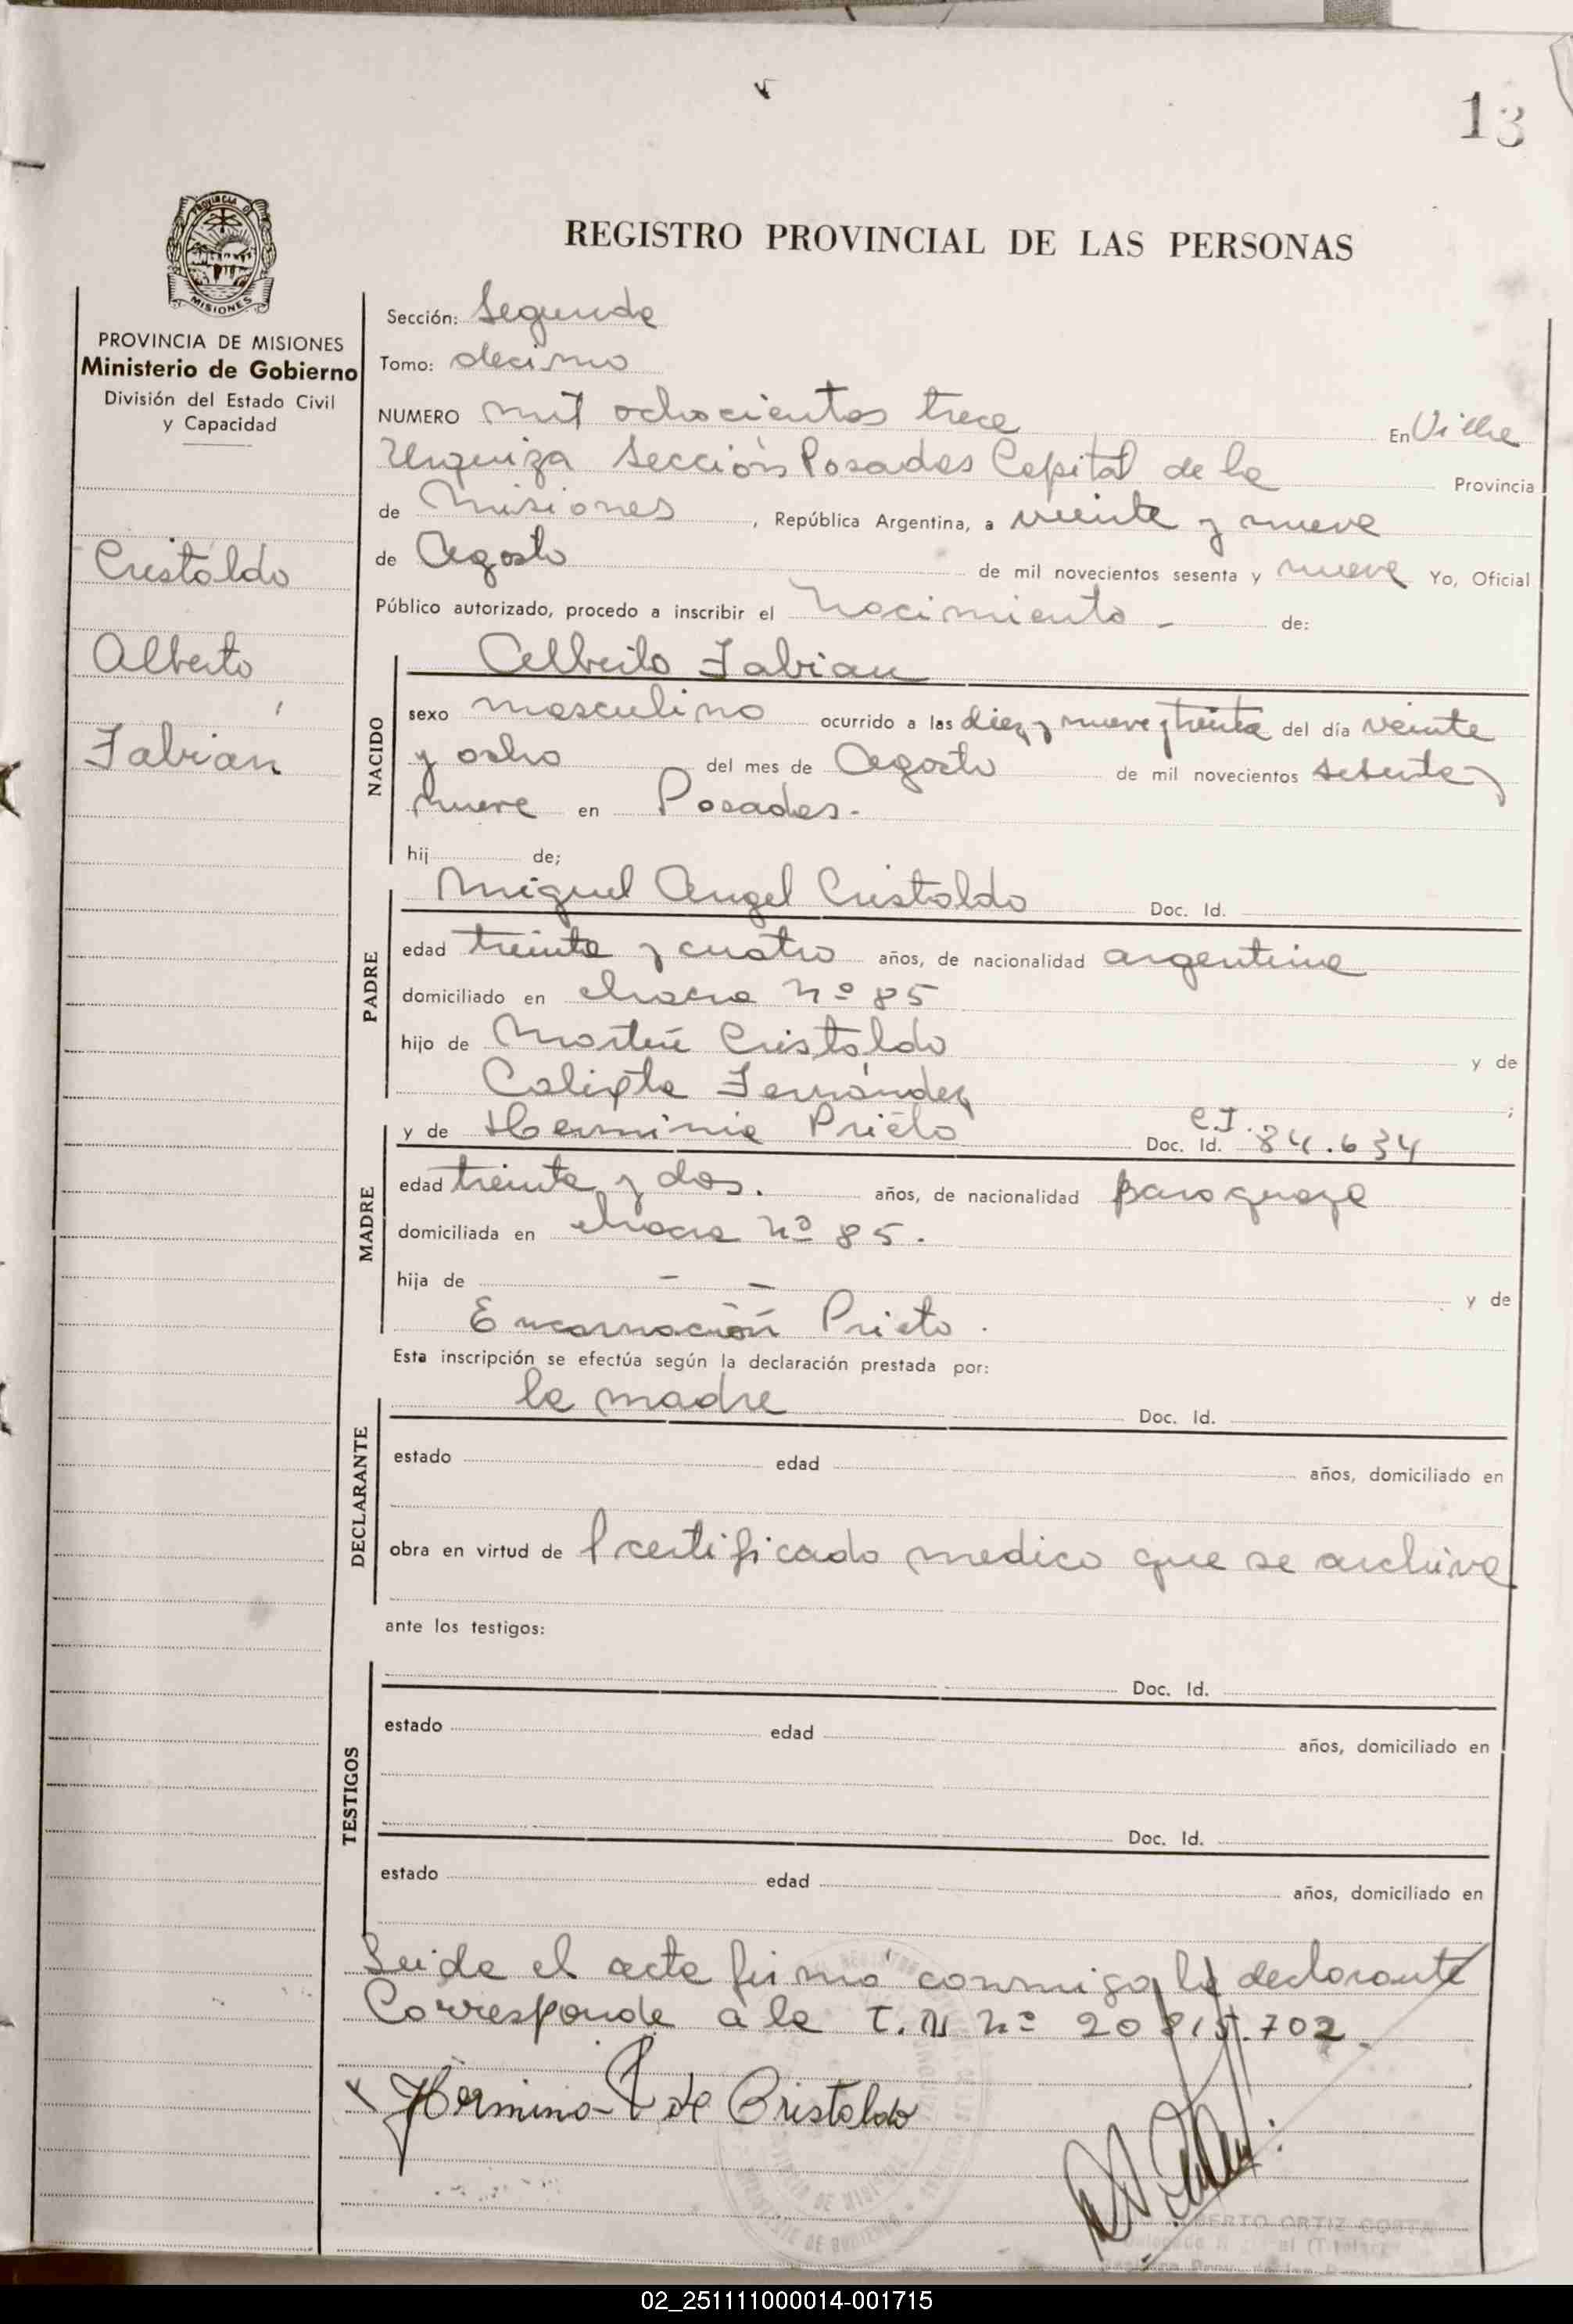 13
REGISTRO PROVINCIAL DE LAS PERSONAS
PROVINCIA DE MISIONES
Ministerio de Gobierno
División del Estado Civil
y Capacidad
Cristaldo
Alberto
Fabian
Sección: Segunda
Tomo: decimo
NUMERO mil ochocientos trece En Villa
Urquiza Sección Posadas Capital de la Provincia
de Misiones, República Argentina, a veinte y nueve
de Agosto de mil novecientos sesenta y nueve Yo, Oficial
Público autorizado, procedo a inscribir el Nacimiento - de:
NACIDO
Alberto Fabian
sexo masculino ocurrido a las diez y nueve y treinta del día veinte
y ocho del mes de Agosto de mil novecientos sesenta y
nueve en Posadas.
hij de;
PADRE
Miguel Angel Cristaldo Doc. Id.
edad treinta y cuatro años, de nacionalidad argentina
domiciliado en chacra Nº 85
hijo de Martin Cristaldo y de
Calixta Fernández ;
MADRE
y de Herminia Prieto Doc. Id. C.I. 84.634
edad treinta y dos. años, de nacionalidad paraguaya
domiciliada en chacra Nº 85.
hija de - - y de
Encarnación Prieto.
Esta inscripción se efectúa según la declaración prestada por:
DECLARANTE
la madre Doc. Id.
estado edad años, domiciliado en
obra en virtud de l certificado medico que se archiva
ante los testigos:
TESTIGOS
Doc. Id.
estado edad años, domiciliado en
Doc. Id.
estado edad años, domiciliado en
Leida el acta firmó conmigo la declarante
Corresponde a la T.N nº 20.815.702.
Hermina P de Cristaldo
BERTO ORTIZ COSTA
02_251111000014-001715